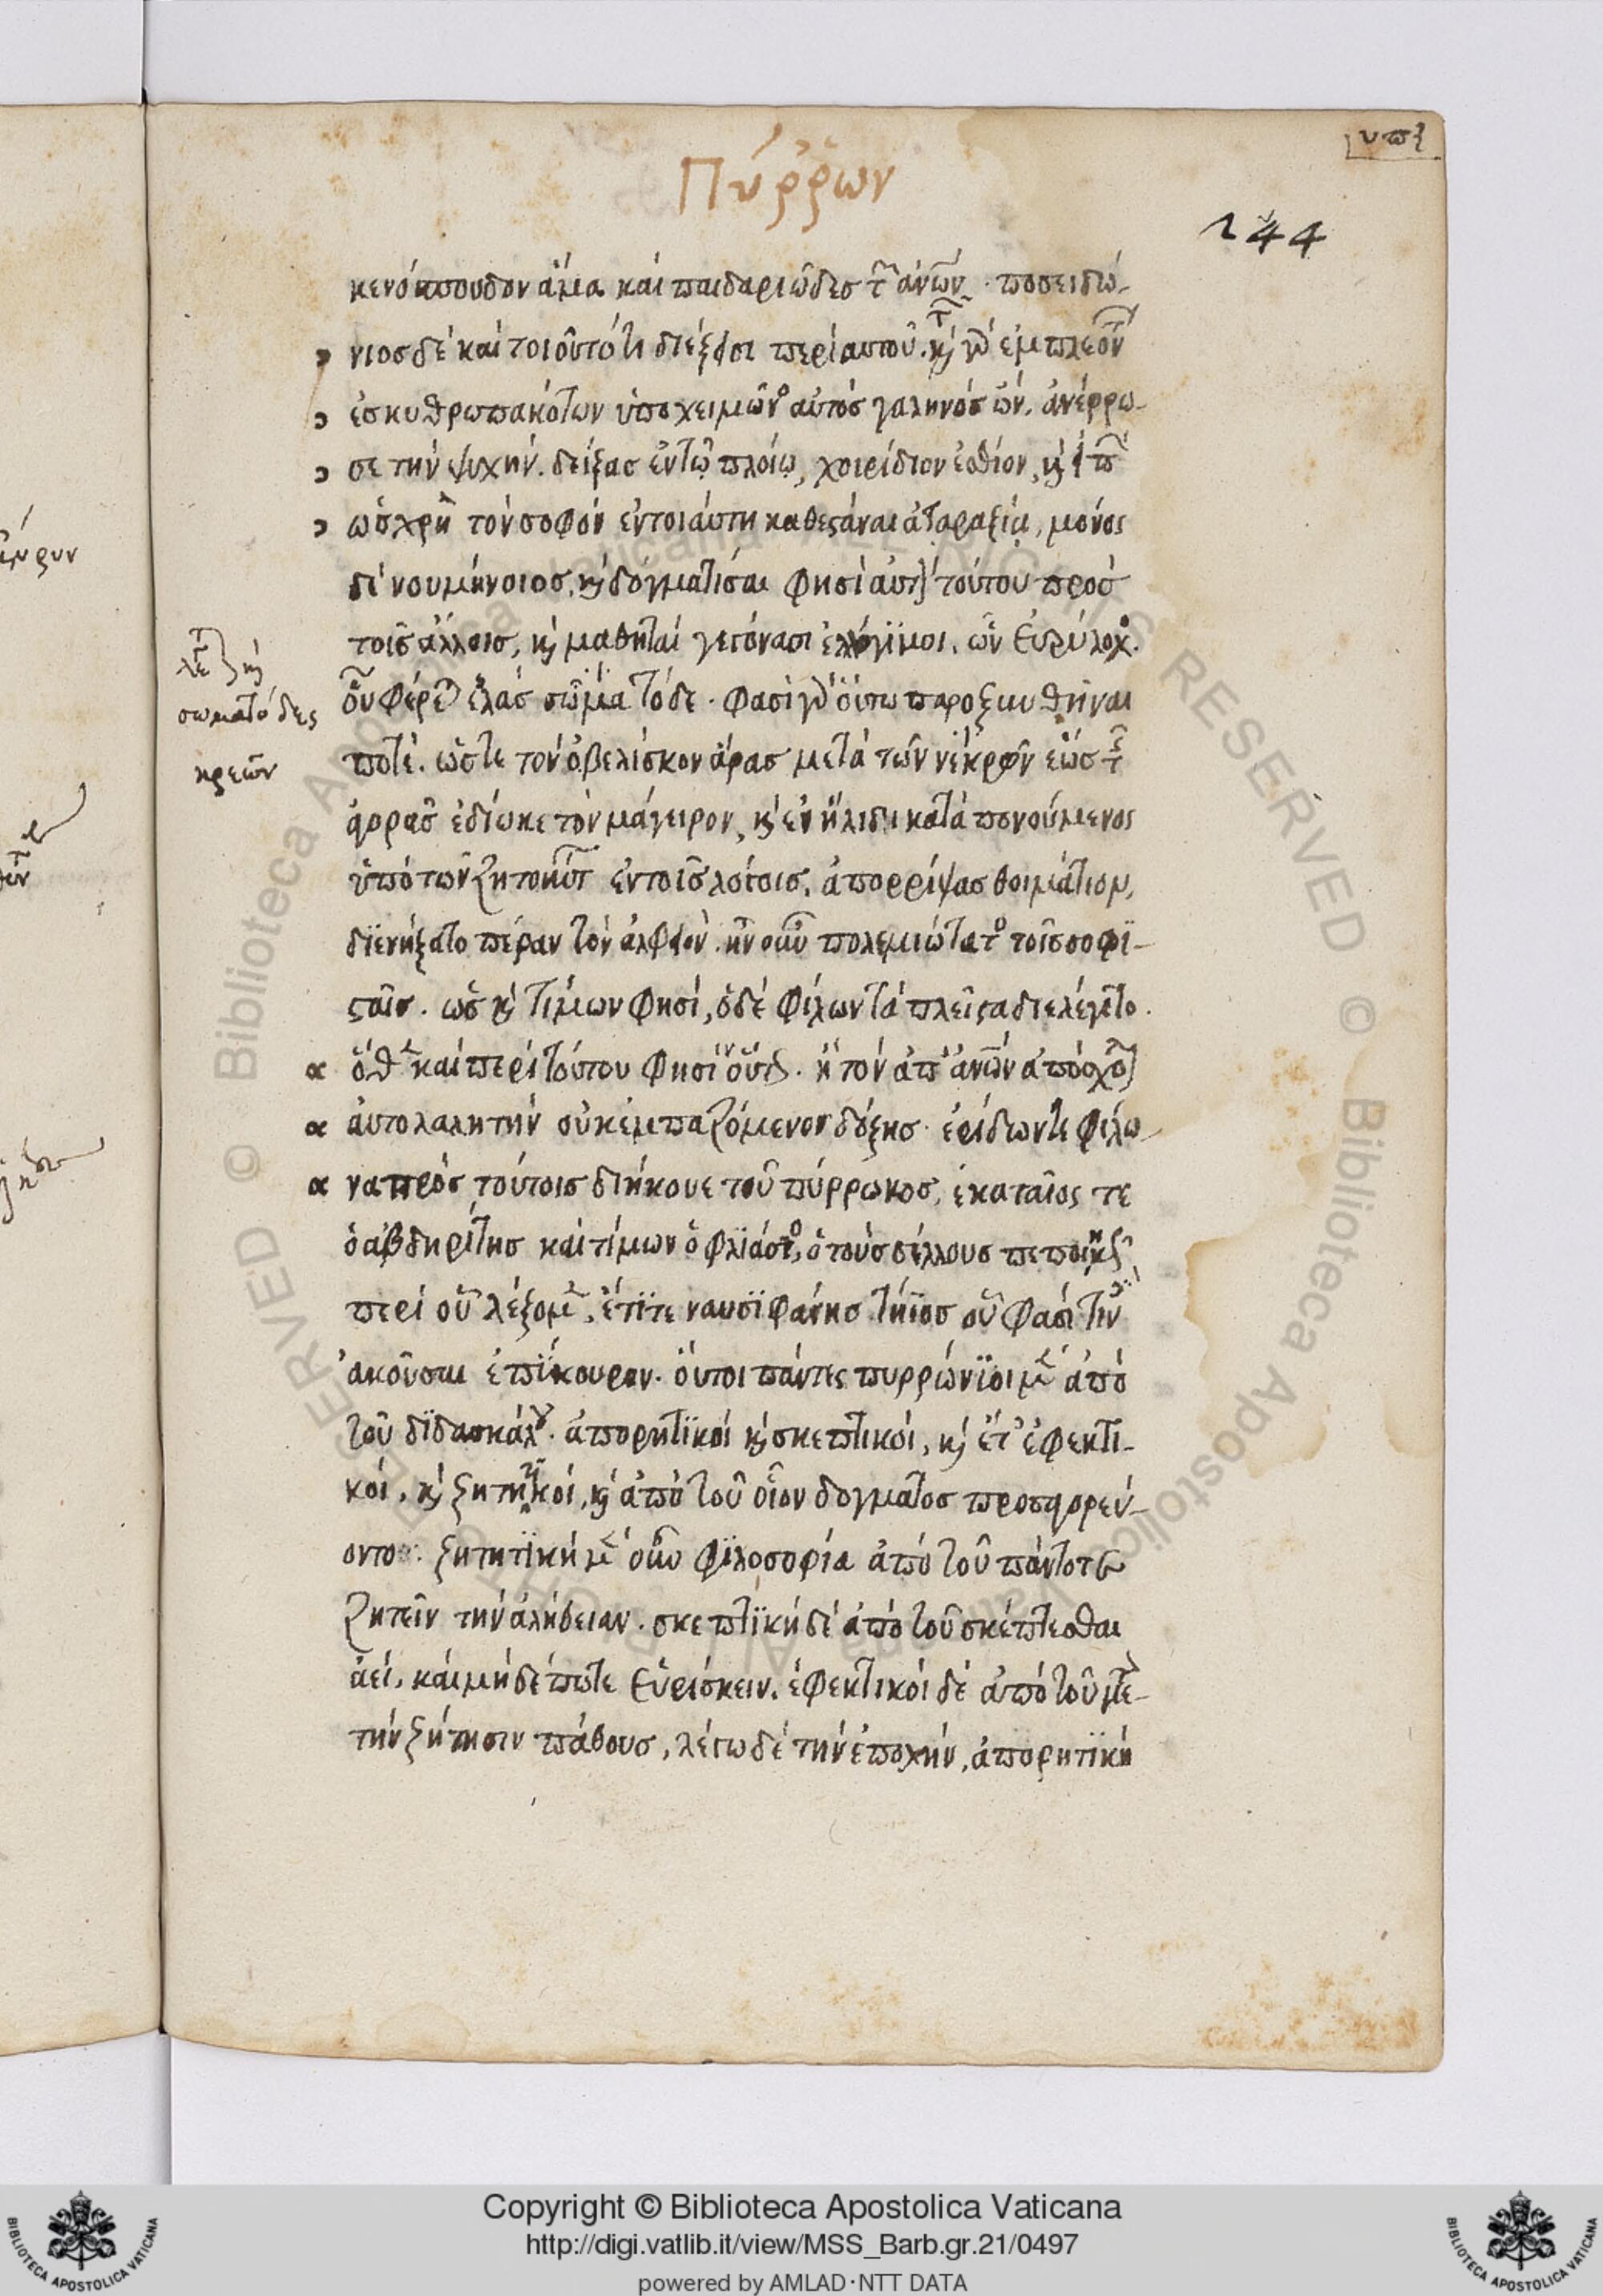 υπζ
Πύρρων
244
κενόσπουδον ἅμα καὶ παιδαριῶδες τ ἀνῶν. ποσειδώ-
νιος δὲ καὶ τοιοῦτό τι διέξεισι περὶ αὐτοῦ. τ κὴ γὰρ ἐμπλεόντ
ἐσκυθρωπακότων ὑπο χειμῶνο αὐτὸς γαληνὸς ὢν. ἀνέρρω-
σε τὴν ψυχήν. δείξας ἐν τῷ πλοίῳ, χοιρίδιον ἐσθίον, κὴ
ὡς χρὴ τὸν σοφὸν ἐν τοιαύτη καθεστάναι ἀταραξίᾳ, μόνος
δὲ νουμήνοιος, κὴ δογματίσαι φησὶ αὐτ τούτου πρὸς
τοῖς ἄλλοις, κὴ μαθηταὶ γεγόνασι ἐλλόγϊμοι, ὧν Εὐρύλοχο.
λε ζκὴ
σωματό δες
κρεῶν
οὗ φέρε ἐλάσσωμα τόδε. φασὶ γὰρ οὕτω παροξυνθῆναι
ποτέ. ὥστε τὸν ὀβελίσκον ἄρας μετὰ τῶν νεκρῶν ἕως τ
ἀγορᾶς ἐδίωκε τὸν μάγειρον, κὴ ἐν ἤλιδι καταπονούμενος
ὑπὸ τῶν ζητούντ ἐν τοῖς λόγοις, ἀπορρίψας θοιμάτιον,
δϊενήξατο πέραν τὸν ἀλφειόν. ἦν οὖν πολεμιώτατο τοῖς σοφϊ-
σταῖς. ὡς κὴ τίμων φησί, ὁ δὲ φίλων τὰ πλεῖστα διελέγετο.
ὅθ καὶ περὶ τούτου φησὶν οὕτ. ἢ τὸν ἀπ' ἀνῶν ἀπόσχο
αὐτολαλητὴν οὐκ ἐμπαζόμενον δόξης ἐρίδων τε φίλω-
να πρὸς τούτοις διήκουε τοῦ πύρρωνος, ἑκαταῖος τε
ὁ ἀβδηρίτης καὶ τίμων ὁ φλϊάσιο, ὁ τοὺς σίλλους πεποιηκ
περὶ οὗ λέξομ, ἔτϊ τε ναυσϊφάνης τήϊος οὗ φασί τιν
ἀκοῦσαι ἐπϊκουρον. οὗτοι πάντες πυρρώνϊοι μ ἀπὸ
τοῦ δϊδασκάλου. ἀπορητϊκοὶ κὴ σκεπτικοί, κὴ ἔτ' ἐφεκτι-
κοί, κὴ ζητητικοί, κὴ ἀπὸ τοῦ οἷον δογματος προσηγορεύ-
οντο. ζητητϊκὴ μ οὖν φϊλοσοφία ἀπὸ τοῦ πάντοτε
ζητεῖν τὴν ἀλήθειαν. σκεπτϊκὴ δὲ ἀπὸ τοῦ σκέπτεσθαι
ἀεί, καὶ μηδέποτε Εὑρίσκειν. ἐφεκτικοὶ δὲ ἀπὸ τοῦ με-
τὴν ζήτησιν πάθους, λέγω δὲ τὴν ἐποχήν, ἀπορητϊκὴ
Copyright © Biblioteca Apostolica Vaticana
http://digi.vatlib.it/view/MSS_Barb.gr.21/0497
powered by AMLAD·NTT DATA